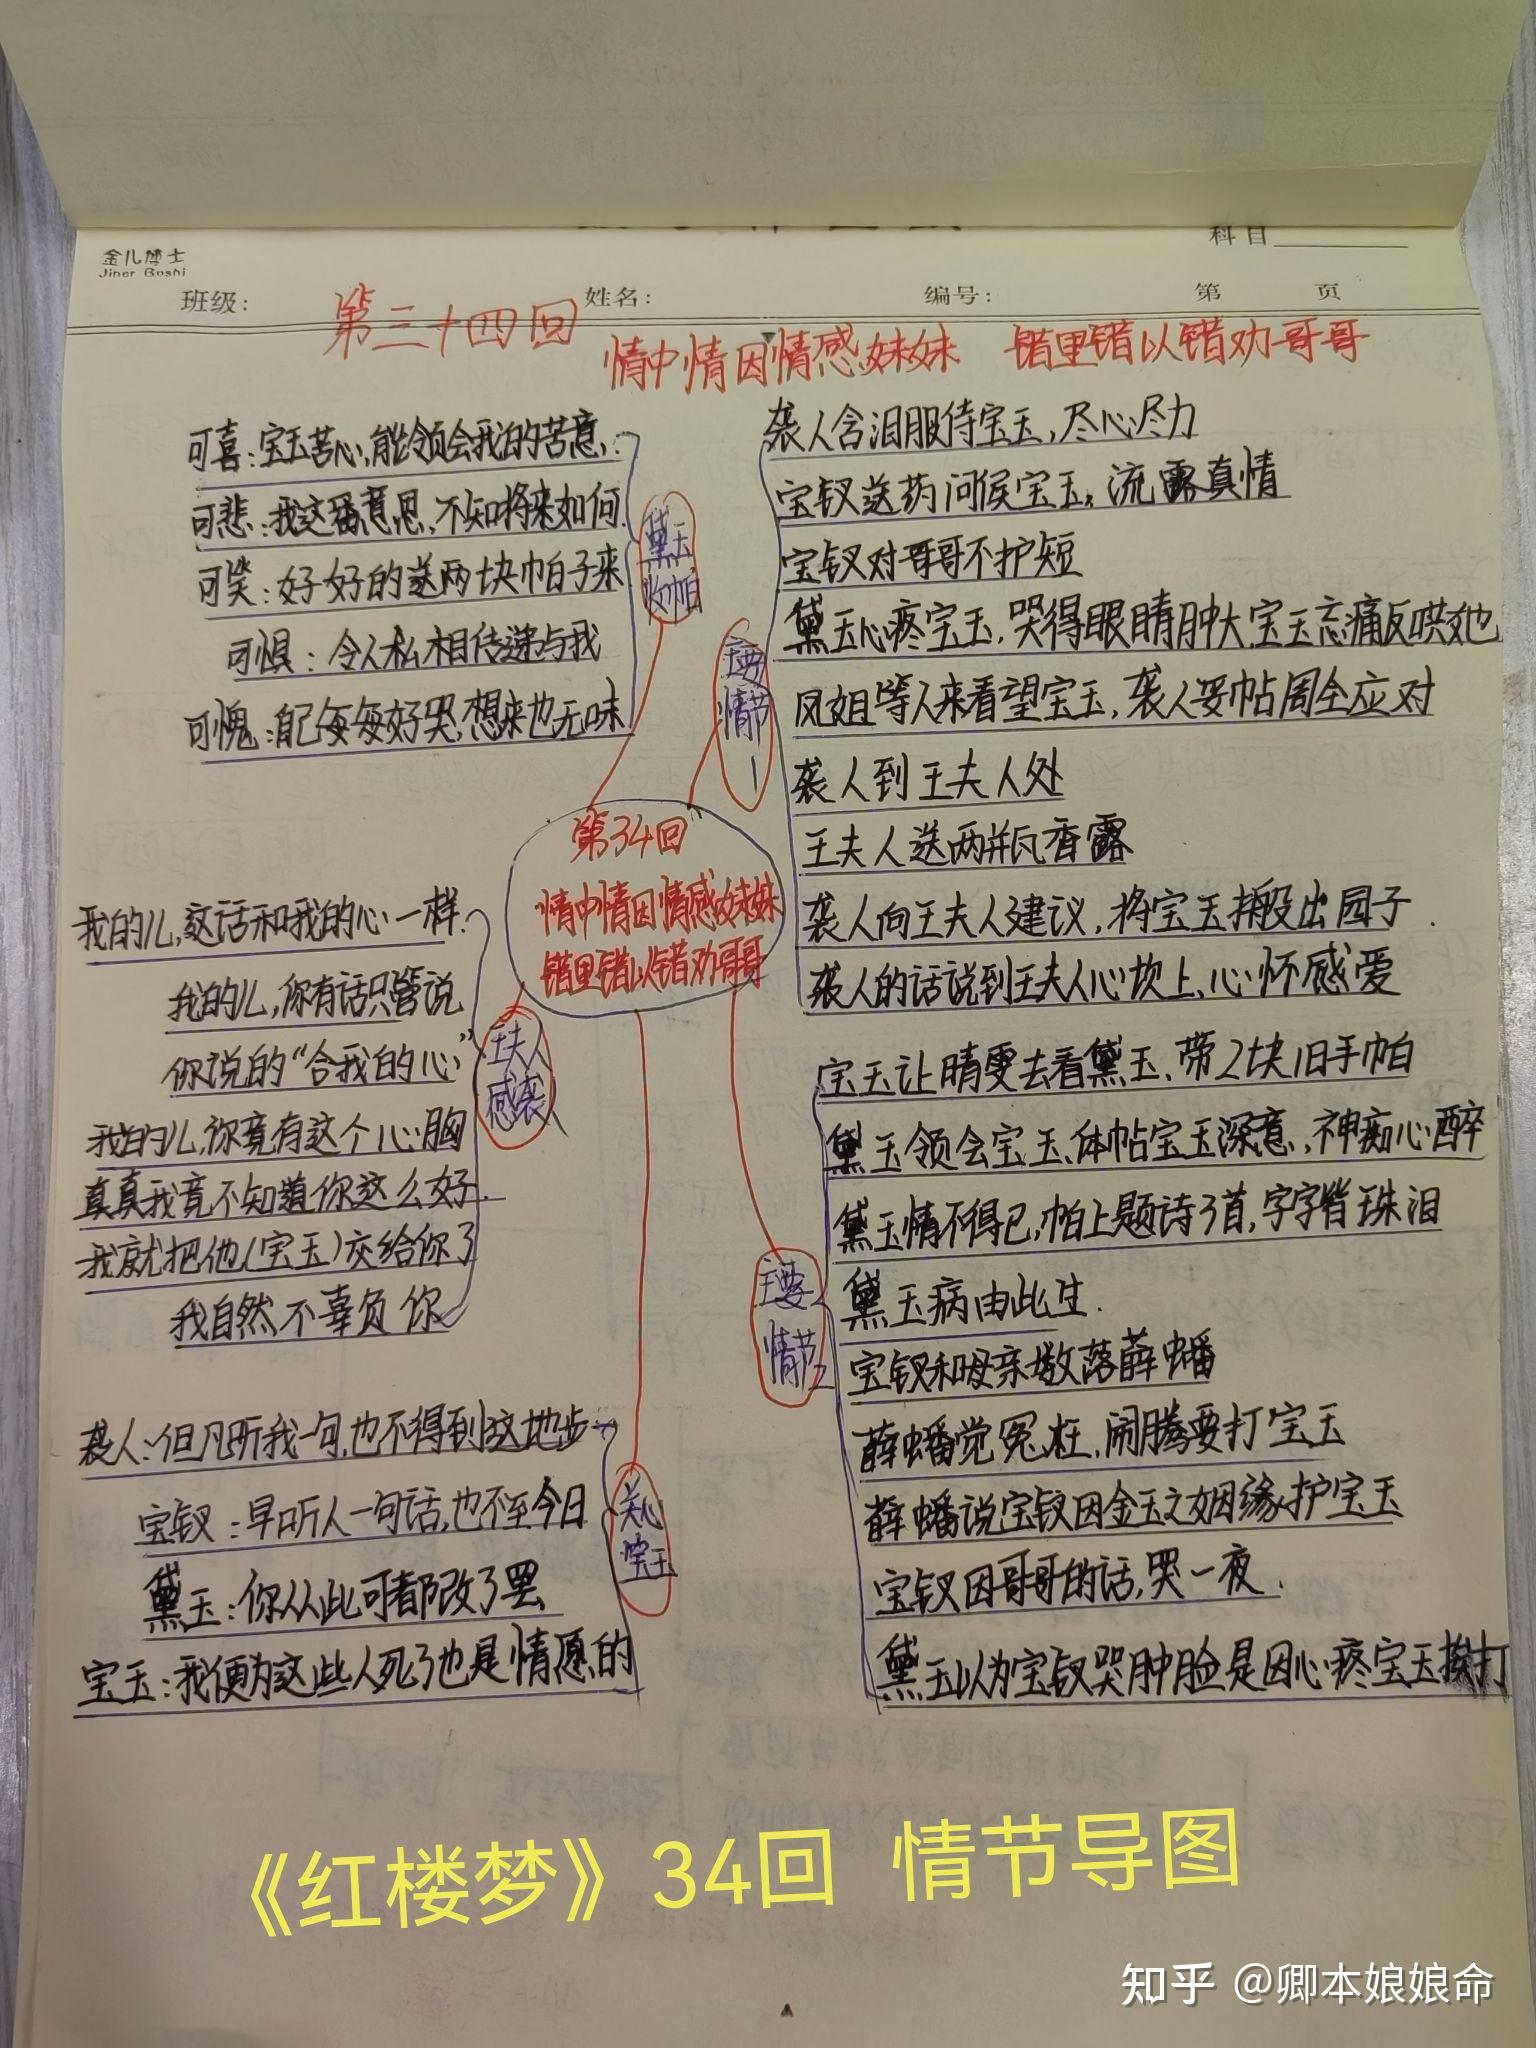 科目
金儿博士
Jiner Boshi
班级：
姓名：
编号：
第 页
第三十四回
情中情因情感妹妹 错里错以错劝哥哥
可喜：宝玉苦心，能领会我的苦意，
可悲：我这番意思，不知将来如何
可笑：好好的送两块帕子来
可惧：令人私相传递与我
可愧：自己每每好哭，想来也无味
黛玉
收帕
袭人含泪服侍宝玉，尽心尽力
宝钗送药问候宝玉，流露真情
宝钗对哥哥不护短
黛玉心疼宝玉，哭得眼睛肿大，宝玉忘痛反哄她
凤姐等人来看望宝玉，袭人妥帖周全应对
袭人到王夫人处
王夫人送两并瓦香露
袭人向王夫人建议，将宝玉搬出园子
袭人的话说到王夫人心坎上，心怀感爱
主要
情节
1
第34回
情中情因情感妹妹
错里错以错劝哥哥
我的儿，这话和我的心一样
我的儿，你有话只管说
你说的“合我的心”
我的儿，你竟有这个心胸
真真我竟不知道你这么好
我就把他（宝玉）交给你了
我自然不辜负你
王夫人
感袭人
宝玉让晴雯去看黛玉，带2块旧手帕
黛玉领会宝玉、体帖宝玉深意，神痴心醉
黛玉情不得已，帕上题诗3首，字字皆珠泪
黛玉病由此生．
宝钗和母亲数落薛蟠
薛蟠觉冤枉，闹腾要打宝玉
薛蟠说宝钗因金玉之姻缘护宝玉
宝钗因哥哥的话，哭一夜．
黛玉以为宝钗哭肿脸是因心疼宝玉挨打
主要
情节2
袭人：但凡听我一句，也不得到这地步
宝钗：早听人一句话，也不至今日
黛玉：你从此可都改了罢
宝玉：我便为这些人死了也是情愿的
关心
宝玉
《红楼梦》34回 情节导图
知乎 @卿本娘娘命